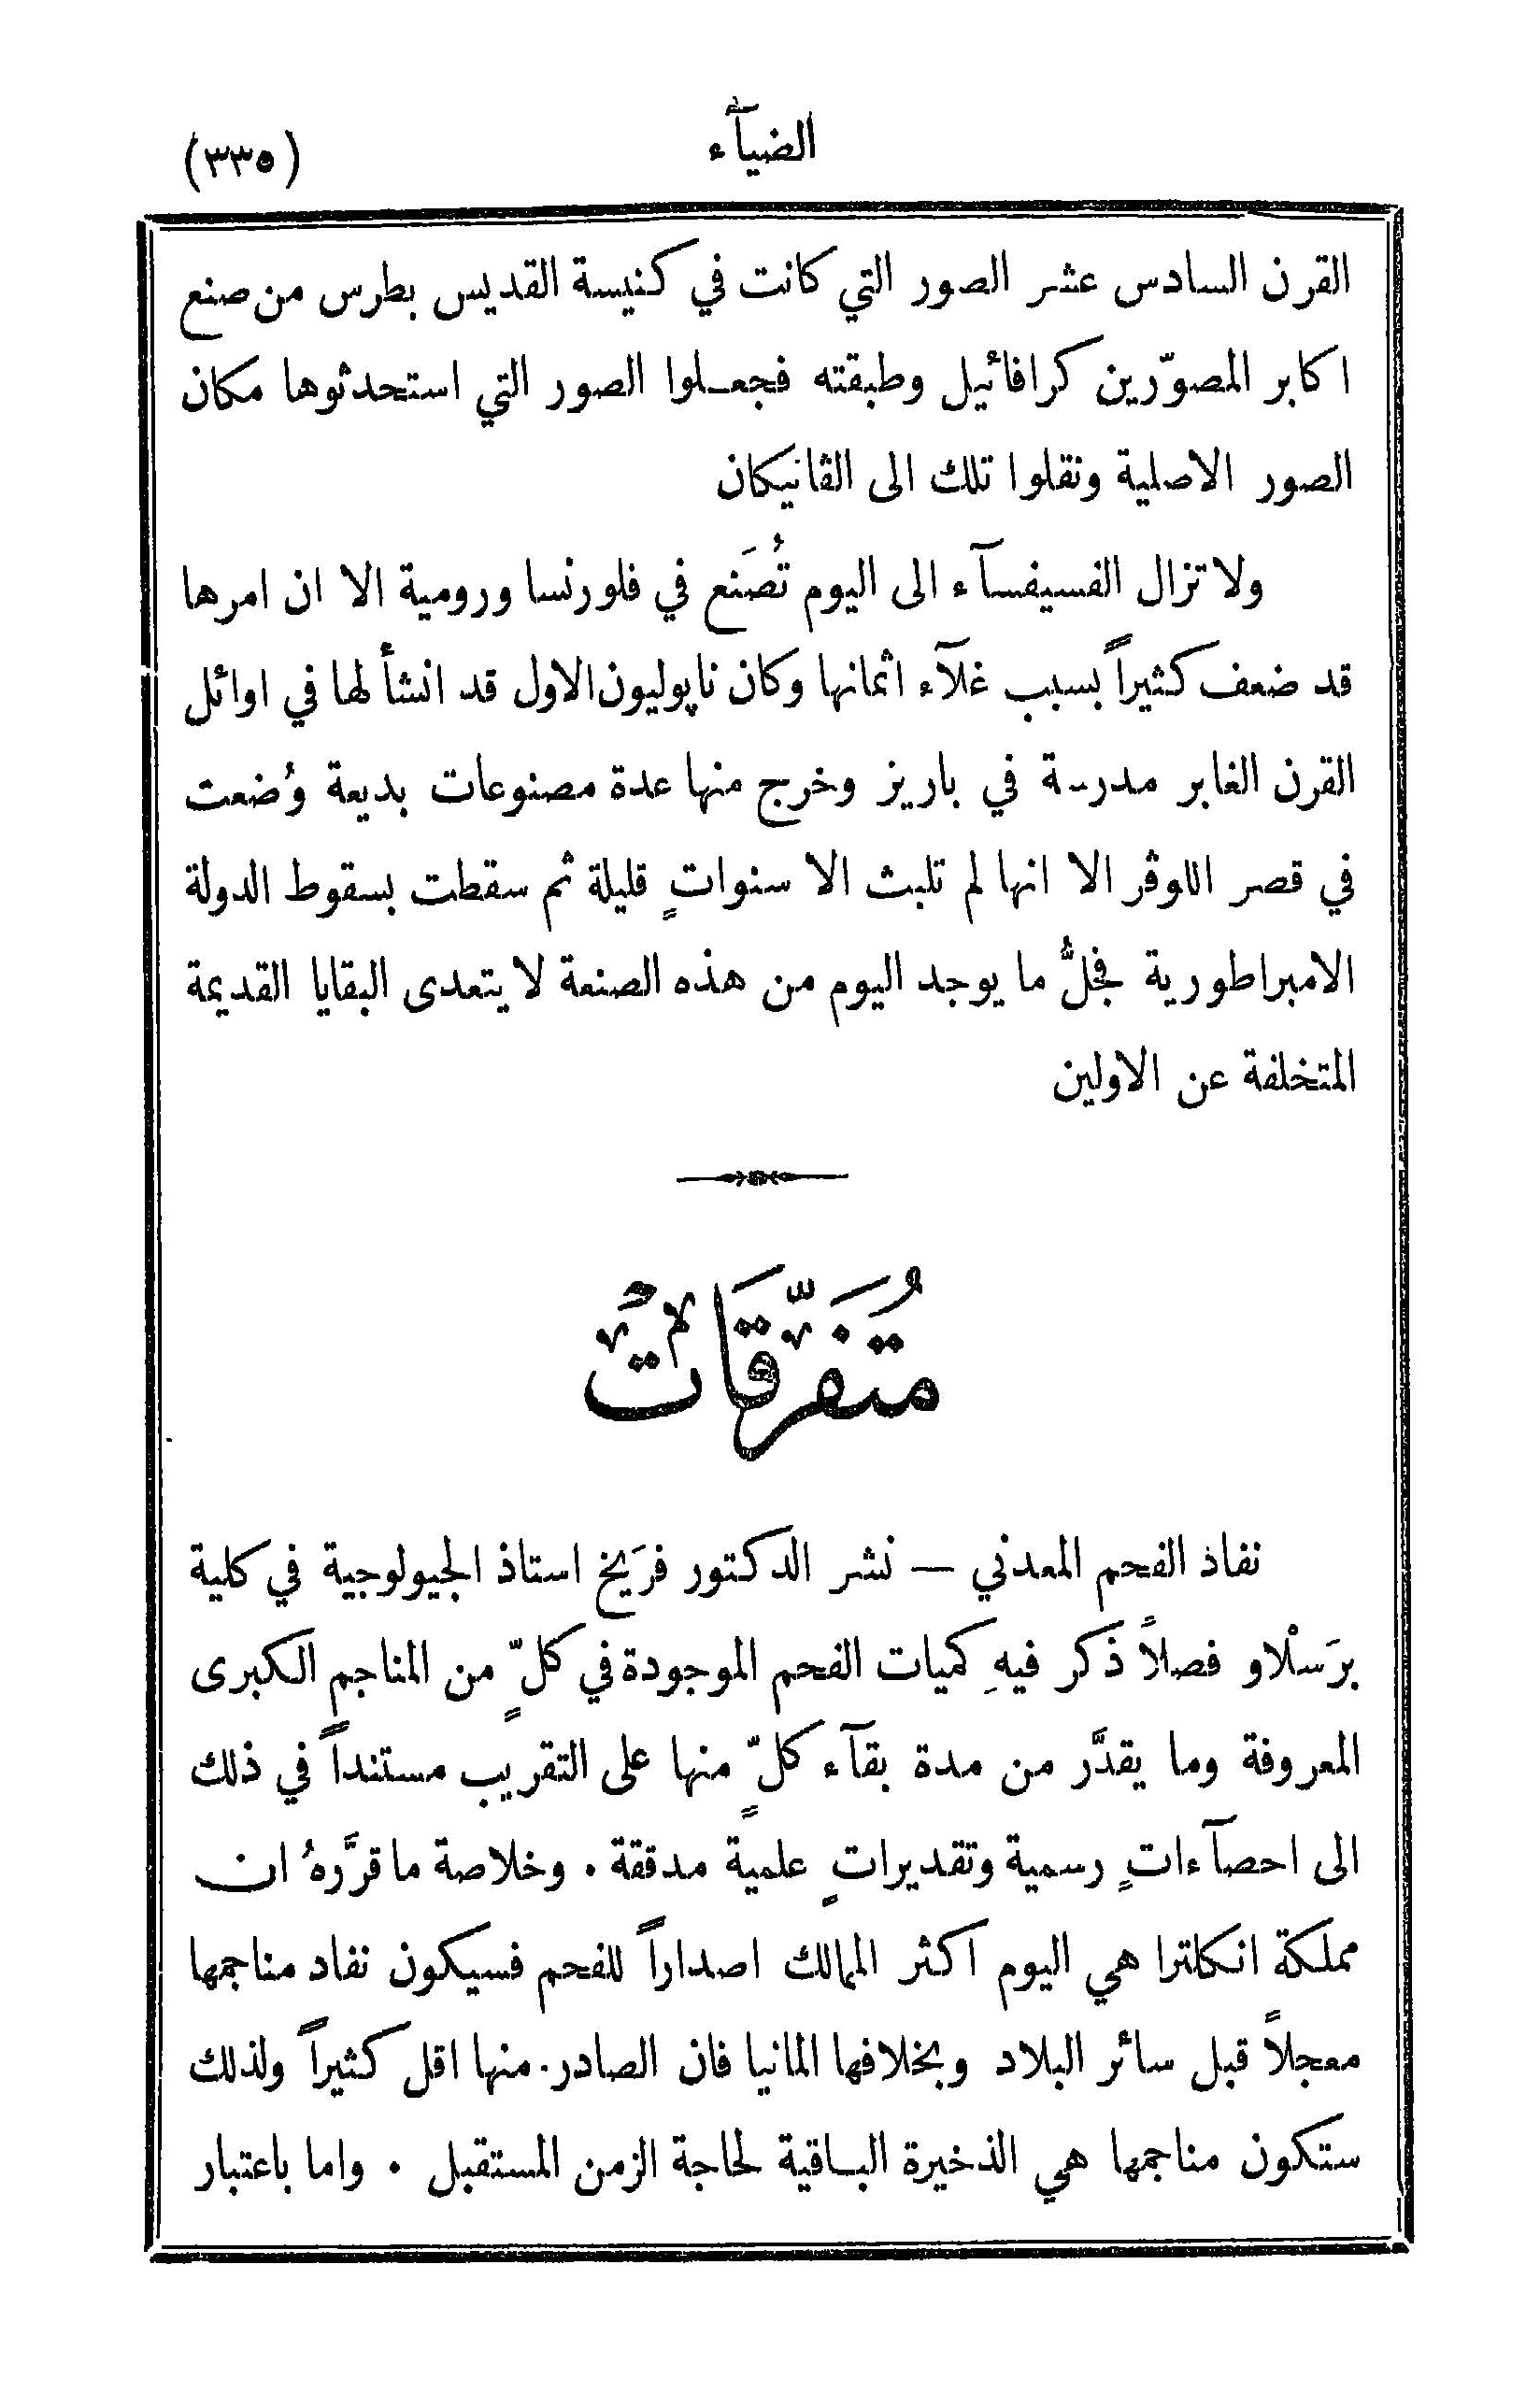 الضيآء
(٣٣٥)
القرن السادس عشر الصور التي كانت في كنيسة القديس بطرس من صنع
اكابر المصوّرين كرافائيل وطبقته فجعلوا الصور التي استحدثوها مكان
الصور الاصلية ونقلوا تلك الى الڤاتيكان
ولا تزال الفسيفسآء الى اليوم تُصنَع في فلورنسا ورومية الا ان امرها
قد ضعف كثيراً بسبب غلآء اثمانها وكان ناپوليون الاول قد انشأ لها في اوائل
القرن الغابر مدرسة في باريز وخرج منها عدة مصنوعات بديعة وُضعت
في قصر اللوڤر الا انها لم تلبث الا سنواتٍ قليلة ثم سقطت بسقوط الدولة
الامبراطورية فجُلُّ ما يوجد اليوم من هذه الصنعة لا يتعدى البقايا القديمة
المتخلفة عن الاولين
مُتَفَرِّقَاتٌ
نفاذ الفحم المعدني — نشر الدكتور فرَيخ استاذ الجيولوجية في كلية
برَسْلاو فصلاً ذكر فيهِ كميات الفحم الموجودة في كلٍّ من المناجم الكبرى
المعروفة وما يقدَّر من مدة بقآء كلٍّ منها على التقريب مستنداً في ذلك
الى احصآءاتٍ رسمية وتقديراتٍ علمية مدققة . وخلاصة ما قرَّرهُ ان
مملكة انكلترا هي اليوم اكثر الممالك اصداراً للفحم فسيكون نفاد مناجمها
معجلاً قبل سائر البلاد وبخلافها المانيا فان الصادر منها اقل كثيراً ولذلك
ستكون مناجمها هي الذخيرة الباقية لحاجة الزمن المستقبل . واما باعتبار